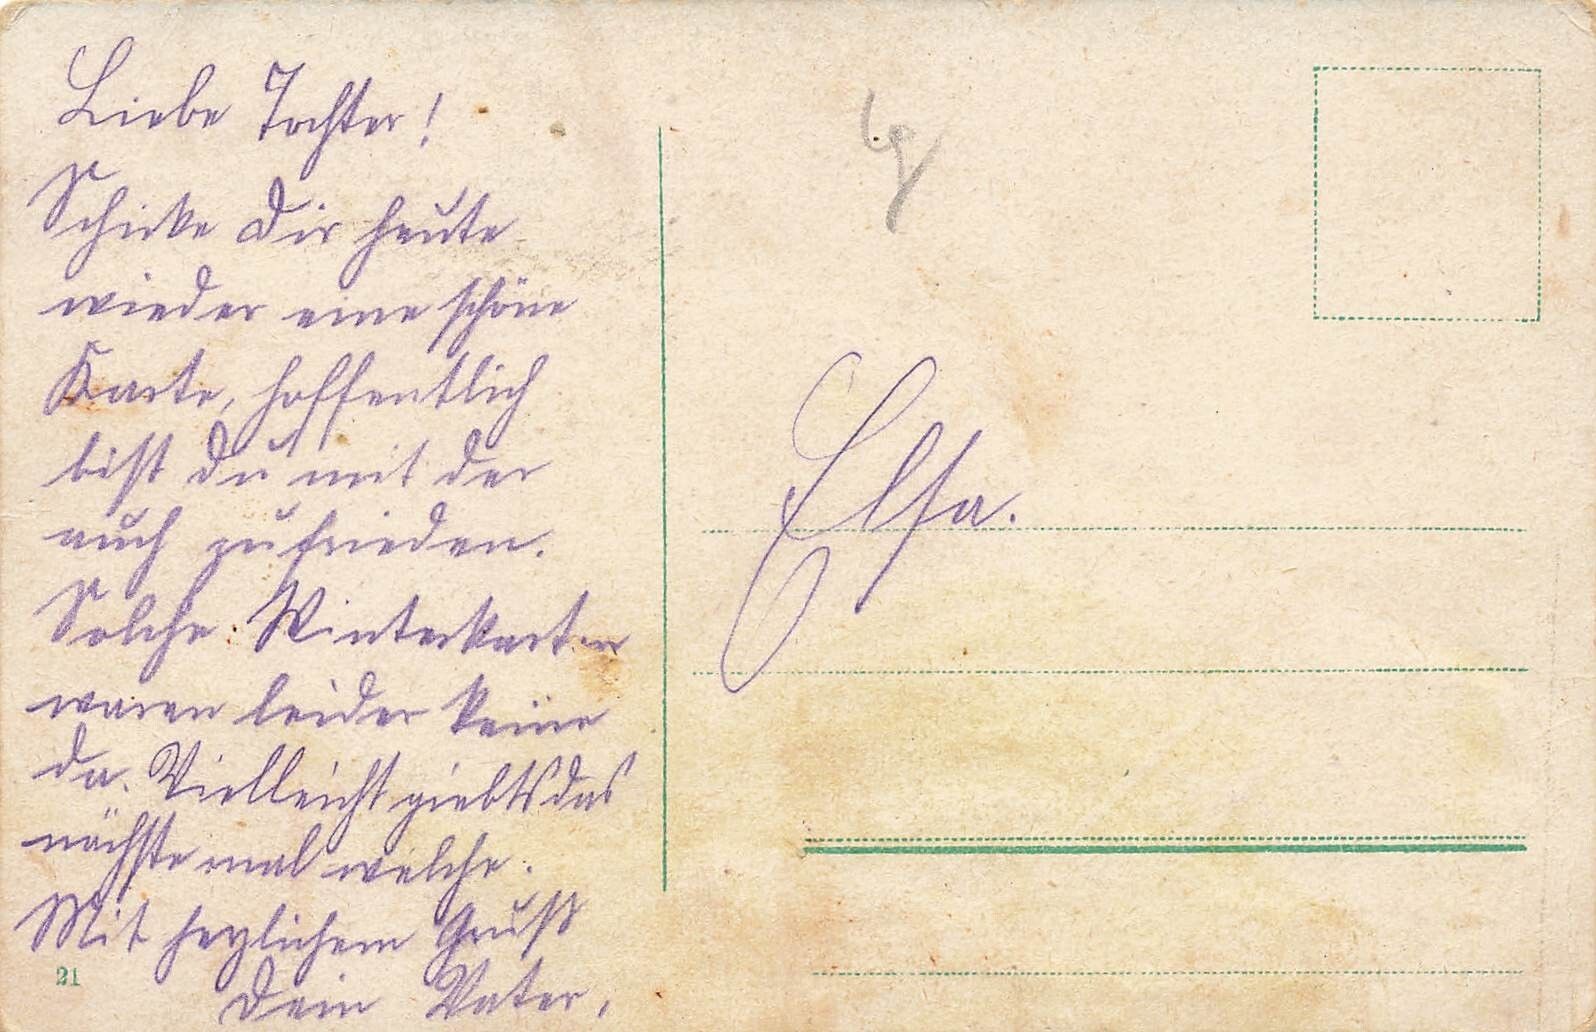 Liebe Tochter!
Schicke Dir heute
wieder eine schöne
Karte, hoffentlich
bist du mit der
auch zufrieden.
Solche Winterkarten
waren leider keine
da. Vielleicht giebts das
nächste mal welche.
Mit herzlichem Gruß
Dein Vater.
21
Elsa.